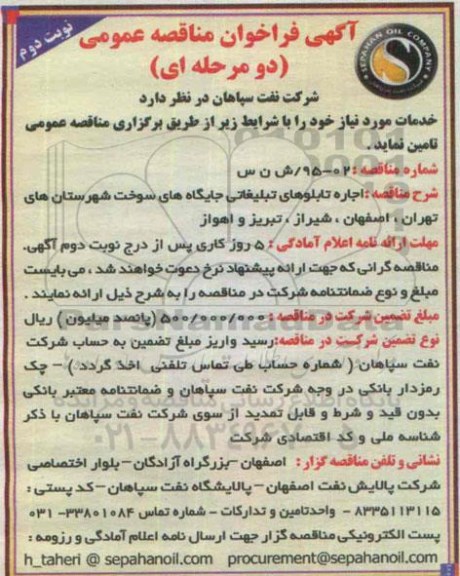 نوبت دوم
آگهی فراخوان مناقصه عمومی
(دو مرحله ای)
SEPAHAN OIL COMPANY
شرکت نفت سپاهان در نظر دارد
خدمات مورد نیاز خود را با شرایط زیر از طریق برگزاری مناقصه عمومی
تامین نماید .
شماره مناقصه : ۰۲-۹۵/ش ن س
شرح مناقصه : اجاره تابلوهای تبلیغاتی جایگاه های سوخت شهرستان های
تهران ، اصفهان ، شیراز ، تبریز و اهواز
مهلت ارائه نامه اعلام آمادگی : ۵ روز کاری پس از درج نوبت دوم آگهی.
مناقصه گرانی که جهت ارائه پیشنهاد نرخ دعوت خواهند شد ، می بایست
مبلغ و نوع ضمانتنامه شرکت در مناقصه را به شرح ذیل ارائه نمایند .
مبلغ تضمین شرکت در مناقصه : ۵۰۰/۰۰۰/۰۰۰ (پانصد میلیون) ریال
نوع تضمین شرکت در مناقصه:رسید واریز مبلغ تضمین به حساب شرکت
نفت سپاهان ( شماره حساب طی تماس تلفنی اخذ گردد ) – چک
رمزدار بانکی در وجه شرکت نفت سپاهان و ضمانتنامه معتبر بانکی
بدون قید و شرط و قابل تمدید از سوی شرکت نفت سپاهان با ذکر
شناسه ملی و کد اقتصادی شرکت
نشانی و تلفن مناقصه گزار : اصفهان –بزرگراه آزادگان – بلوار اختصاصی
شرکت پالایش نفت اصفهان – پالایشگاه نفت سپاهان – کد پستی :
۸۳۳۵۱۱۳۱۱۵ - واحدتامین و تدارکات - شماره تماس ۳۳۸۰۱۰۸۴-۰۳۱
پست الکترونیکی مناقصه گزار جهت ارسال نامه اعلام آمادگی و رزومه :
h_taheri @ sepahanoil.com procurement@sepahanoil.com